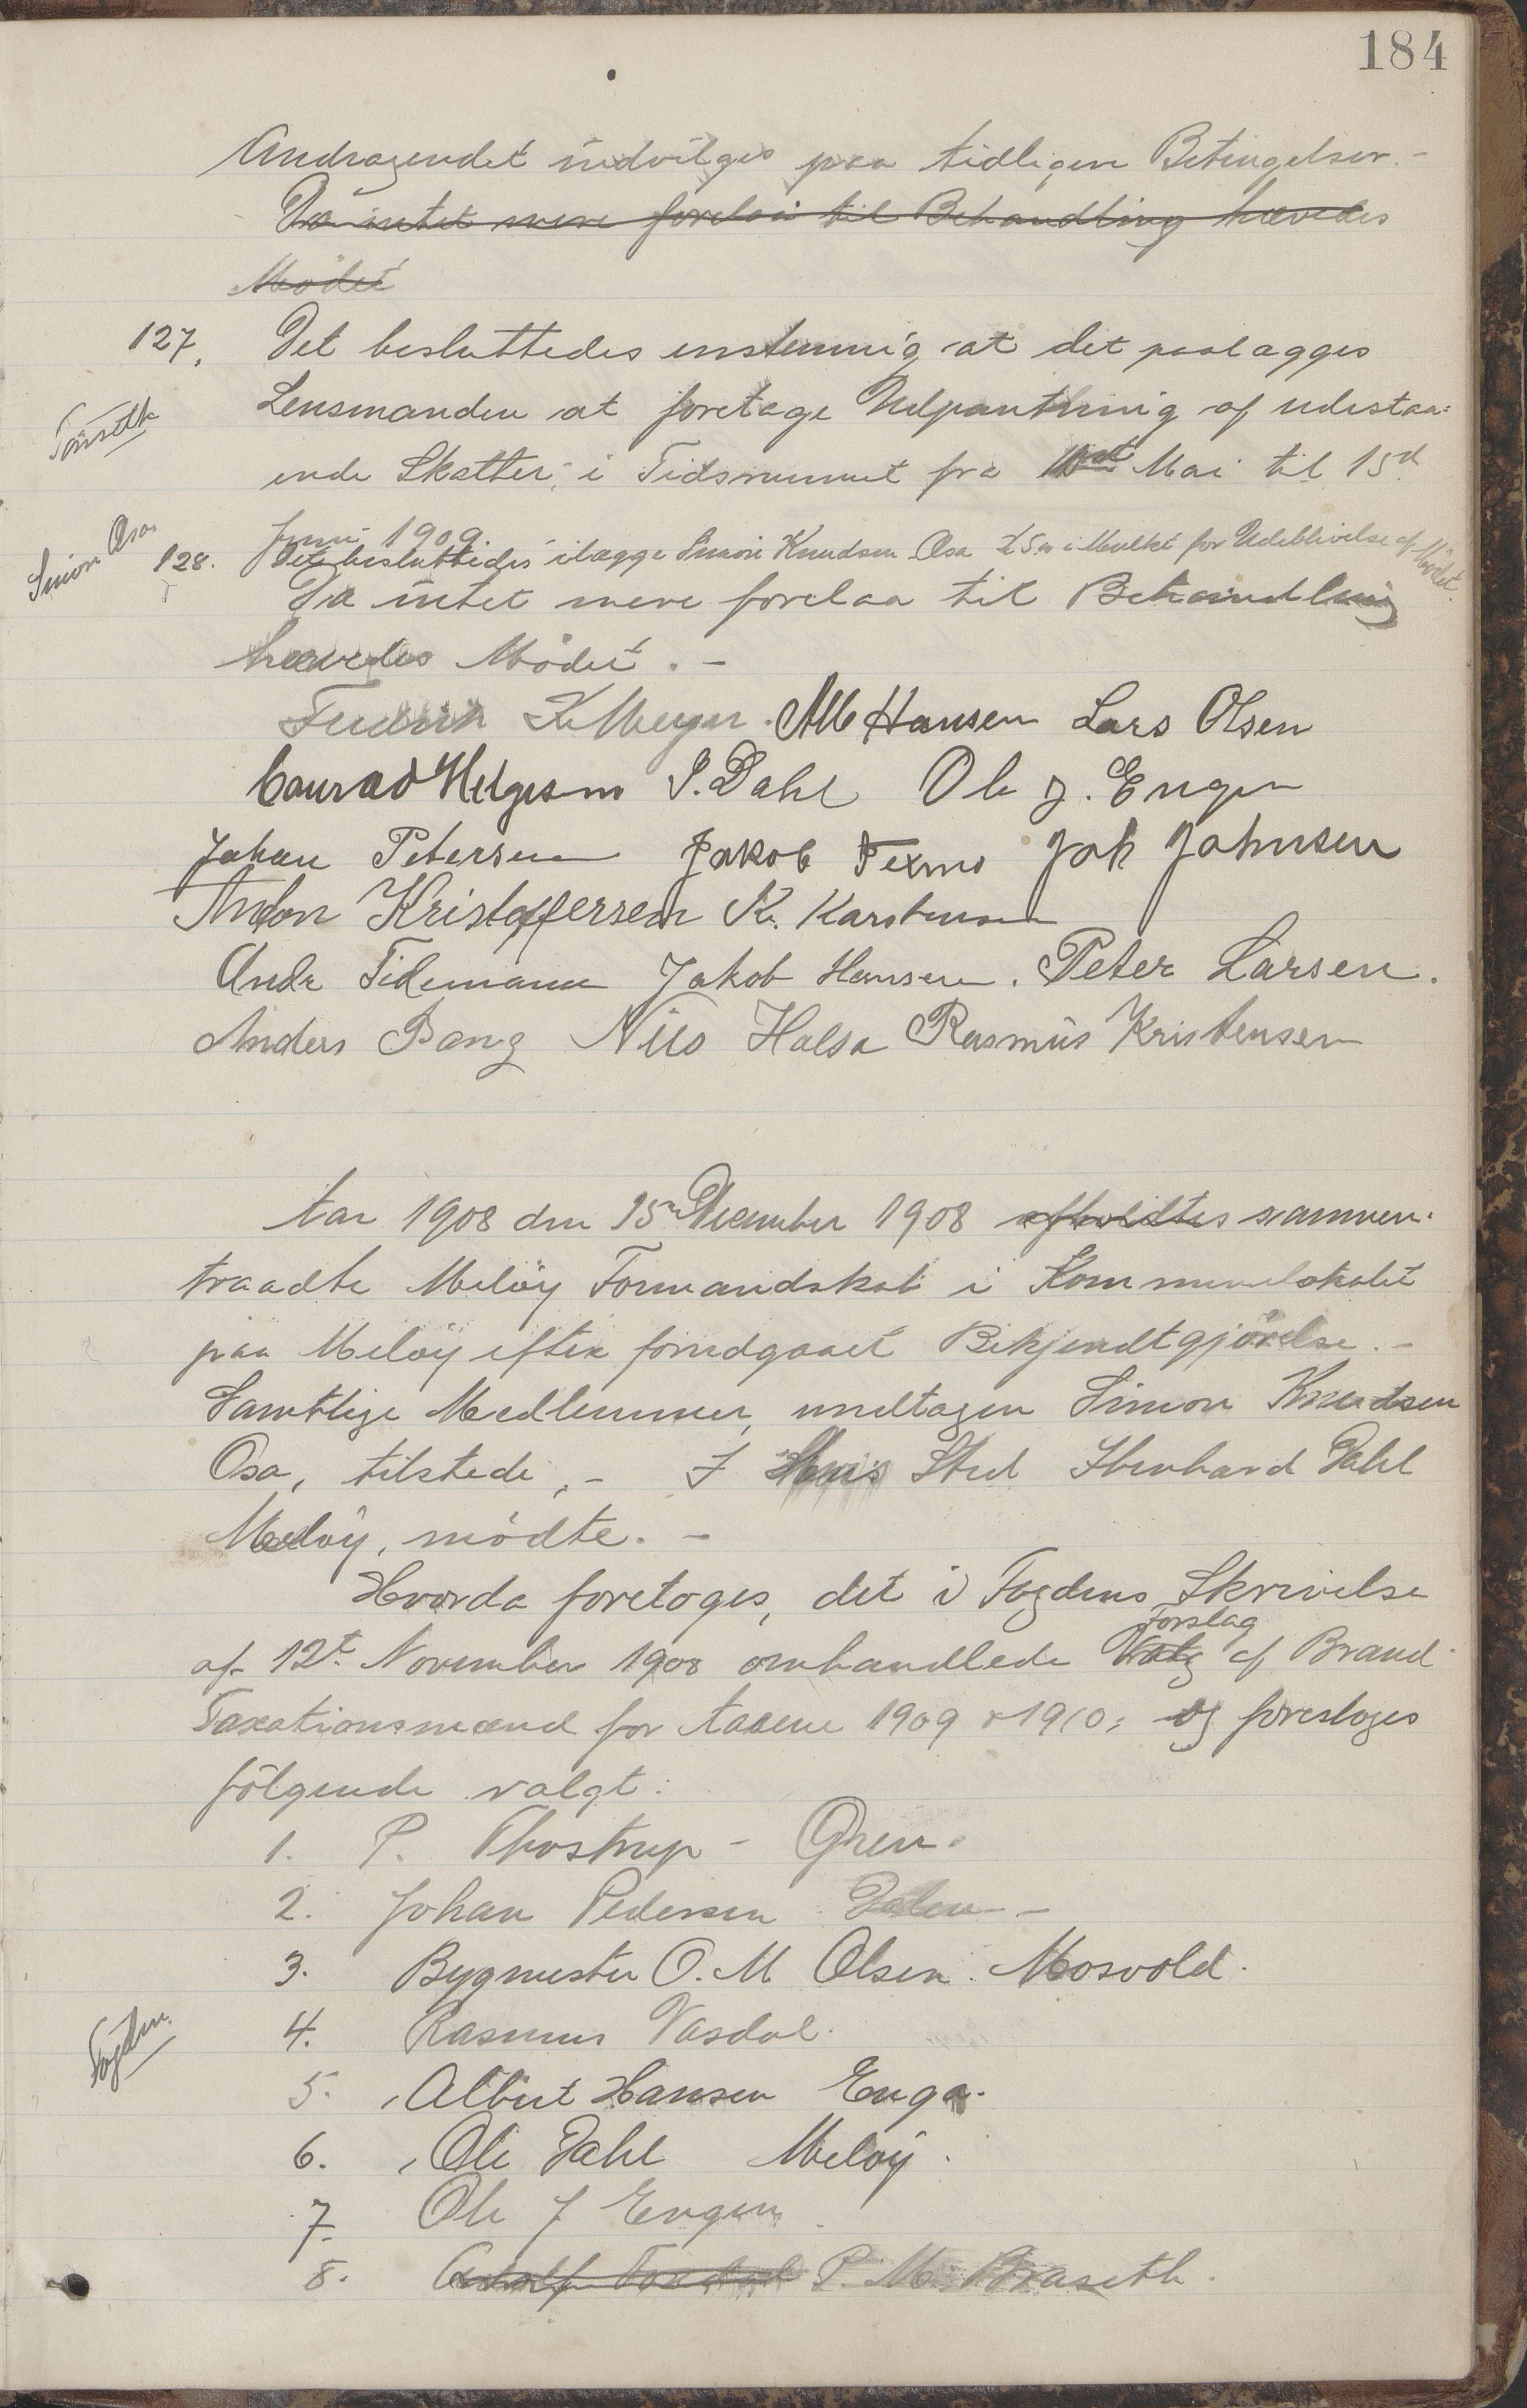 184
Andragendet indvilges paa tidligere Betingelser. -
Da intet mere forelaa til Behandling hævedes
Mödet
127. Det besluttedes enstemmig at det paalægges
Lensmanden at foretage Udpantning af udestaa-
ende Skatter; i Tidsrummet fra Mai til 15d
Juni 1909.
Simon Osa
128. Det besluttedes ilægge Simon Knudsen Osa i Mulkt for Udeblivelse af Mödet.
Da intet mere forelaa til Behandling
hævedes Mödet. -
Meyer. Hansen Lars Olsen
Conrad Helgesen P. Dahl Ole J. Engen
Johan Petersen Jakob Texmo Joh Johnsen
Anton Kristoffersen K. Karstensen
Andr Tidemann Jakob Hansen. Peter Larsen.
Anders Bang Nils Halsa Rasmus Kristensen
Aar 1908 den 15de December 1908 afholdtes sammen-
traadte Melöy Formandskab i Kommunelokalet
paa Melöy efter forudgaaet Bekjendtgjörelse. -
Samtlige Medlemmer, undtagen Simon Knudsen
Osa, tilstede, - I Hans Sted Eberhard Dahl
Melöy, mödte. -
Hvorda foretoges, det i Fogdens Skrivelse
af 12t November 1908 omhandlede Valg forslag af Brand-
Taxationsmænd for Aarene 1909 & 1910; og foresloges
fölgende valgt:
1. P. Thostrup - Ören.
2. Johan Pedersen Dalen -
3. Bygmester O. M Olsen. Mosvold.
4. Rasmus Vasdal.
Fogden.
5. Albert Hansen Enga.
6. Ole Dahl Melöy.
7. Ole J Engen
8. Adolf P. M. Braseth.